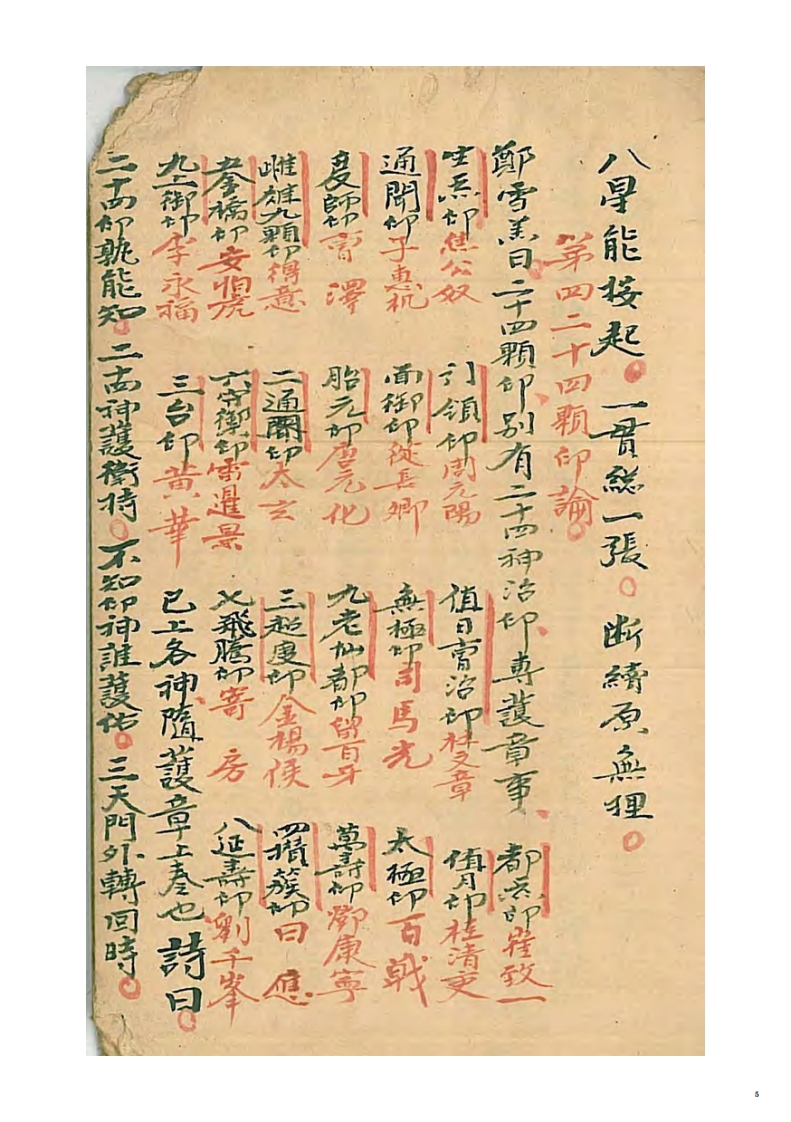 八星能接起。一貫総一張。断續原無狸。
第四二十四顆印論。
鄭雪羔曰。二十四顆印、别有二十四神治印、專護章事、都炁印崔致一
生炁印焦公奴 引領印周元陽 值日曹治印林文章 值月印杜清更
通聞印子惠机 面御印從長卿 無極印司馬光 太極印百戟
度師印曹澤 胎元印唐元化 九老仙都印留百牙 萬壽印鄧康寧
雌雄九顆印得意 二通關印太玄 三超度印金楊侯 四攢簇印曰應
奎橋印安怕虎 六守禦印雷暹景 七飛騰印寄房 八延壽印劉千峯
九上御印李永福 三台印黄華 已上各神隨護章上奏也 詩曰。
二十四印孰能知。二十四神護衛持。不知印神誰護佑。三天門外轉回時。
5